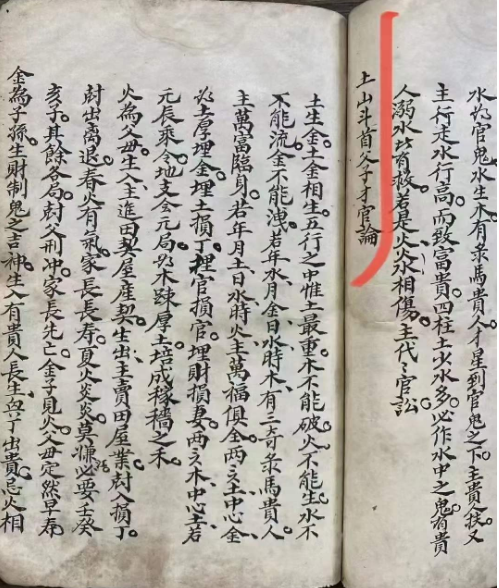 水为官鬼水生木有彔馬貴人才星到官鬼之下主貴人扶又
主行走水行高而致富貴四柱土少水多必作水中之鬼有貴
人溺水皆有救若是火水相傷主代〻官訟
土山斗首父子才官論
土生金土金相生五行之中惟土最重木不能破火不能生水不
不能流金不能洩若年水月金日水時木有三奇彔馬貴人
主萬富臨身若年月土日水時火主萬福俱全两亥土中心金
必土厚埋金埋土損丁埋官損官埋財損妻两亥木中心土若
元長乘令地支会元局为木疎厚土培成稼穡之禾
火為父母生入主進田契屋産契生出主賣田屋業尅入損丁
尅出離退春火有氣家長長寿夏火炎炎莫慊必要壬癸
亥子其餘各局尅父刑冲家長先亡金子見火父母定然早寿
金為子孫生財制鬼之吉神生入有貴人長生與丁出貴忌火相